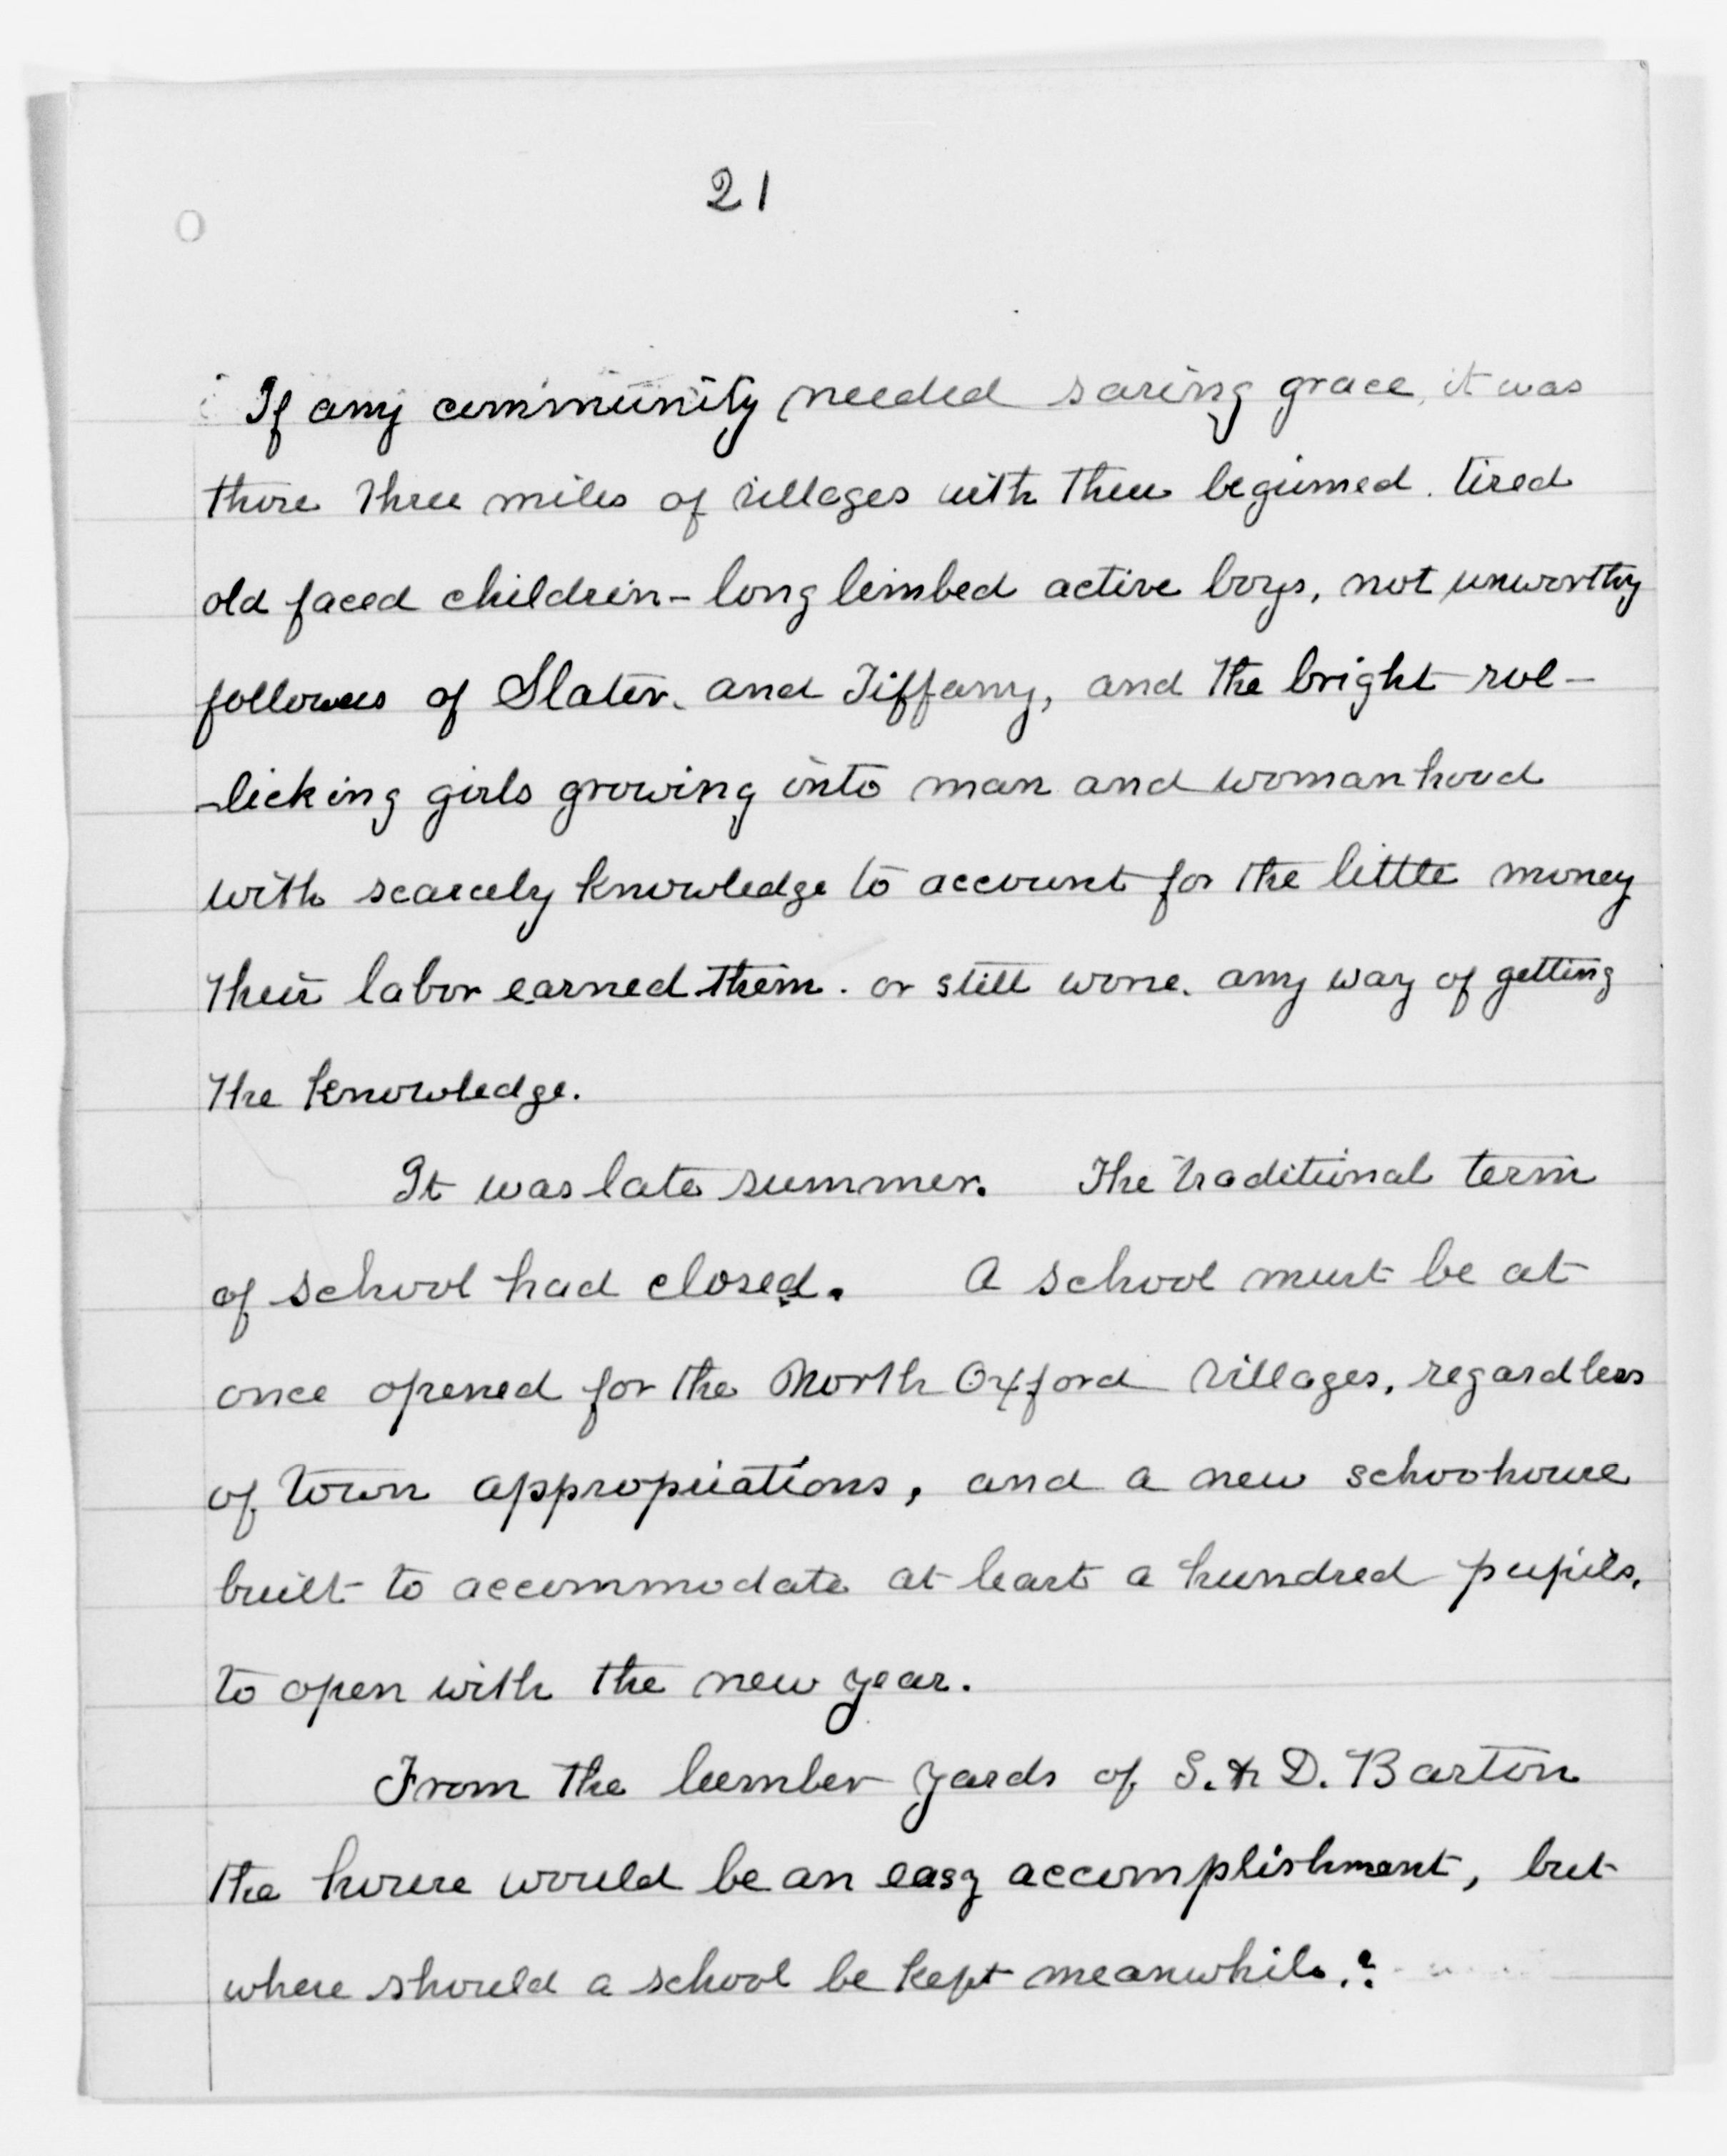 21
If any community needed saving grace, it was
those three miles of villages with their begrimed, tired
old faced children - long limbed active boys, not unworthy
followers of Slater, and Tiffany, and the bright rol-
-licking girls growing into man and womanhood
with scarcely knowledge to account for the little money
their labor earned them. or still worse, any way of getting
the knowledge.
It was late summer. The traditional term
of school had closed. A school must be at
once opened for the North Oxford villages, regardless
of town appropriations, and a new schoohouse
built to accommodate at least a hundred pupils,
to open with the new year.
From the lumber yards of S. & D. Barton
the house would be an easy accomplishment, but
where should a school be kept meanwhile?